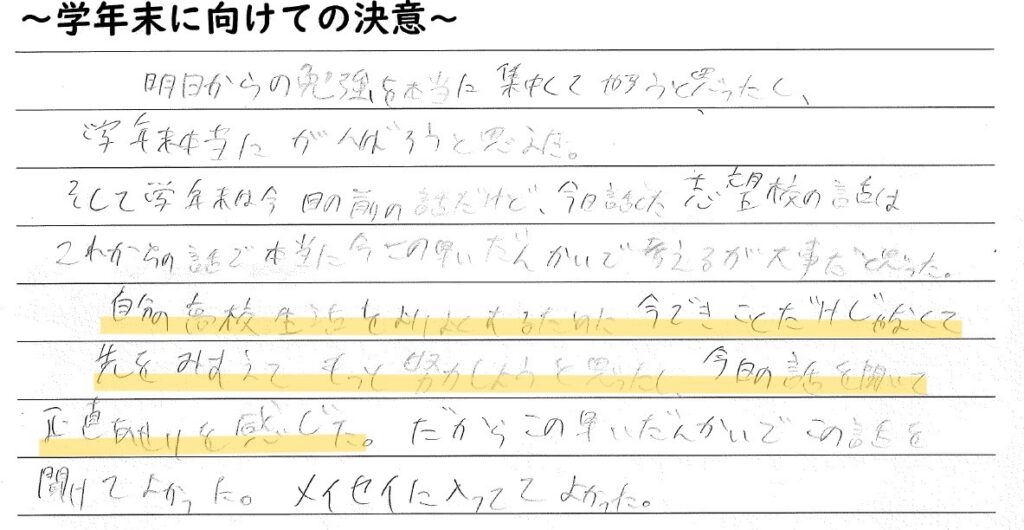 ～学年末に向けての決意～
明日からの勉強を本当に集中してやろうと思ったし、
学年末本当にがんばろうと思えた。
そして学年末は今目の前の話だけど、今日話した志望校の話は
これからの話で本当に今この早いだんかいで考えるが大事だと思った。
自分の高校生活をよりよくするために今できことだけじゃなくて
先をみすえてもっと努力しようと思ったし、今日の話を聞いて
正直あせりを感じた。だからこの早いだんかいでこの話を
聞けてよかった。メイセイに入っててよかった。